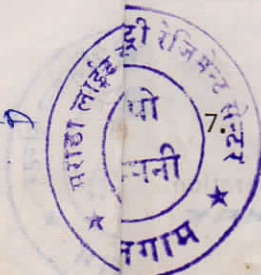 मराठा लाईट
ट्री रेजिमेन्ट सेन्टर
पी
पनी
गाम
7.